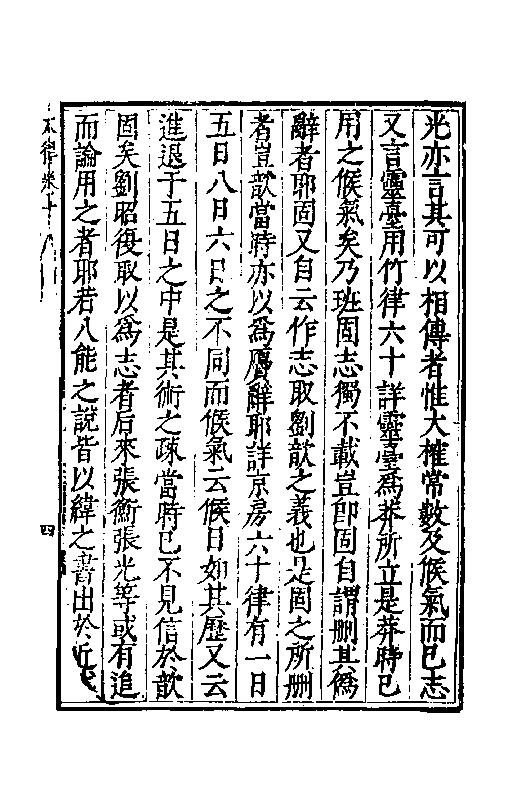 光亦言其可以相傳者惟大榷常數及候氣而已志
又言靈臺用竹律六十詳靈臺爲莽所立是莽時已
用之候氣矣乃班固志獨不載豈卽固自謂刪其僞
辭者耶固又自云作志取劉歆之義也是固之所刪
者豈歆當時亦以爲贗辭耶詳京房六十律有一日
五日八日六日之不同而候氣云候日如其歷又云
進退于五日之中是其術之疎當時已不見信於歆
固矣劉昭復取以爲志者后來張衡張光等或有追
而論用之者耶若八能之說皆以緯之書出於近
四